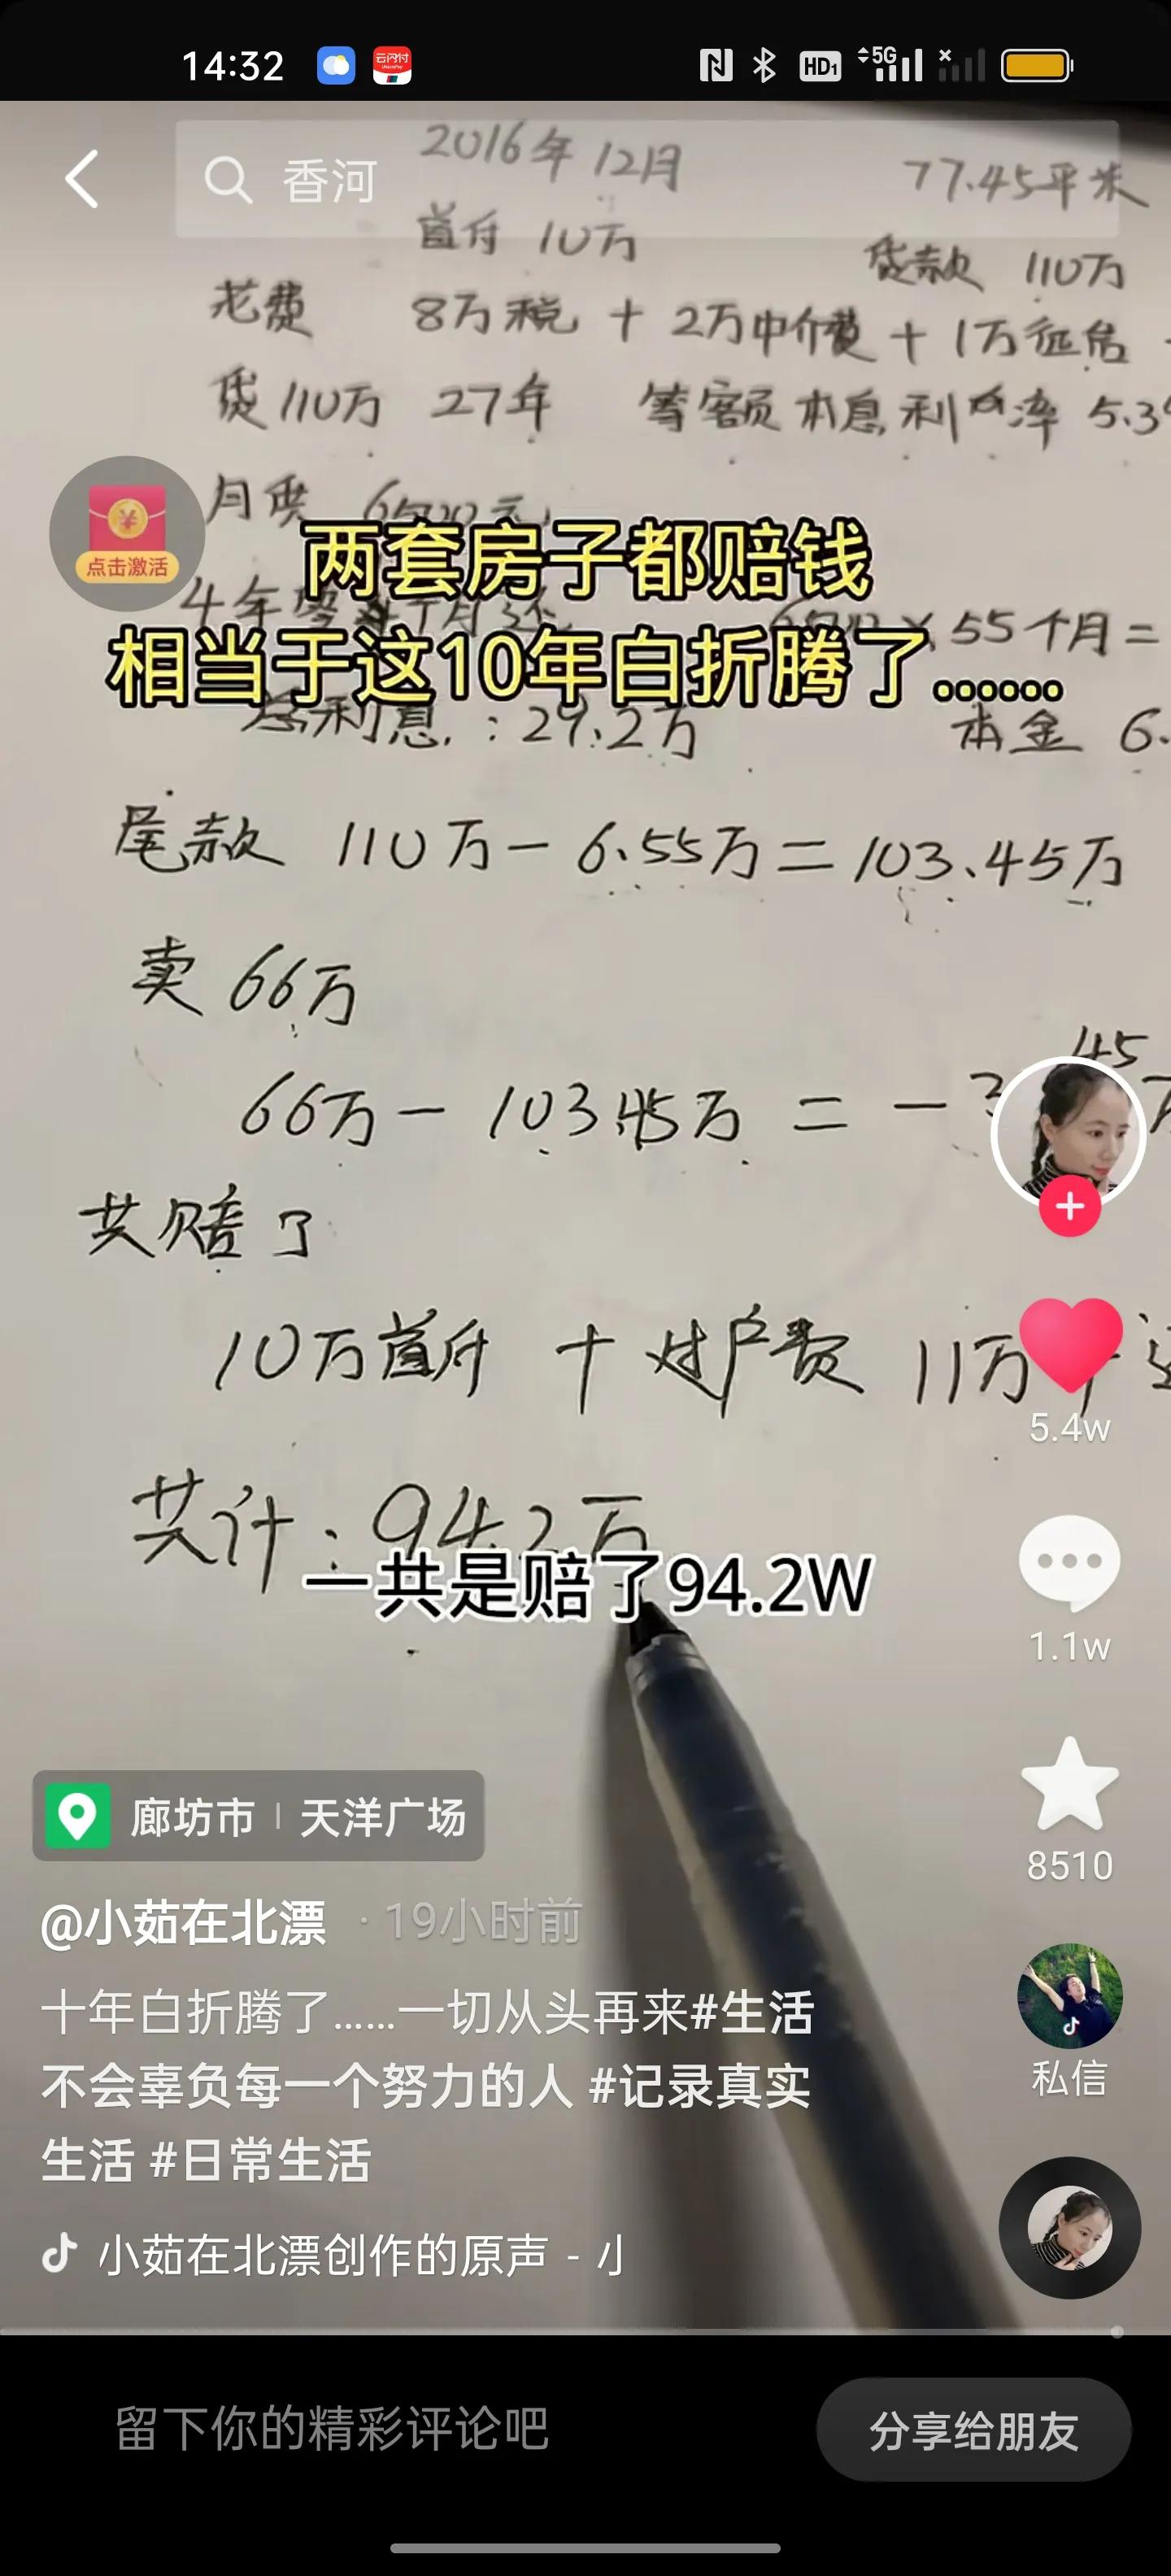 14:32
HD1 5G
香河
2016年12月 77.45平米
首付 10万 贷款 110万
花费 8万税 + 2万中介费 + 1万征信
贷110万 27年 等额本息 利率 5.3
月供
点击激活
两套房子都赔钱
相当于这10年白折腾了......
55个月=
总利息:29.2万 本金 6.
尾款 110万-6.55万=103.45万
卖 66万
66万-103.45万=-3
共赔了
10万首付 + 过户费 11万+
共计:94.2万
一共是赔了94.2W
5.4w
1.1w
8510
私信
廊坊市 | 天洋广场
@小茹在北漂 · 19小时前
十年白折腾了……一切从头再来#生活
不会辜负每一个努力的人 #记录真实
生活 #日常生活
小茹在北漂创作的原声 - 小
留下你的精彩评论吧
分享给朋友